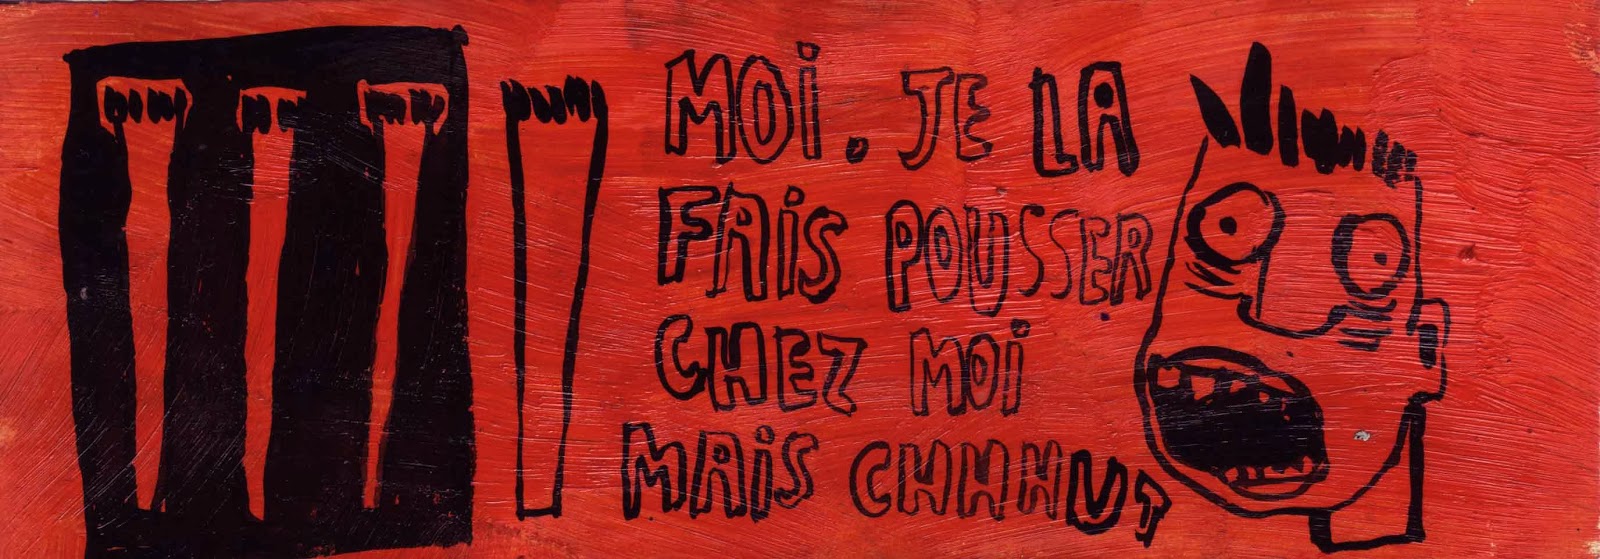 MOi. JE LA
FAiS POUSSER
CHEZ MOi
MAiS CHHHUT